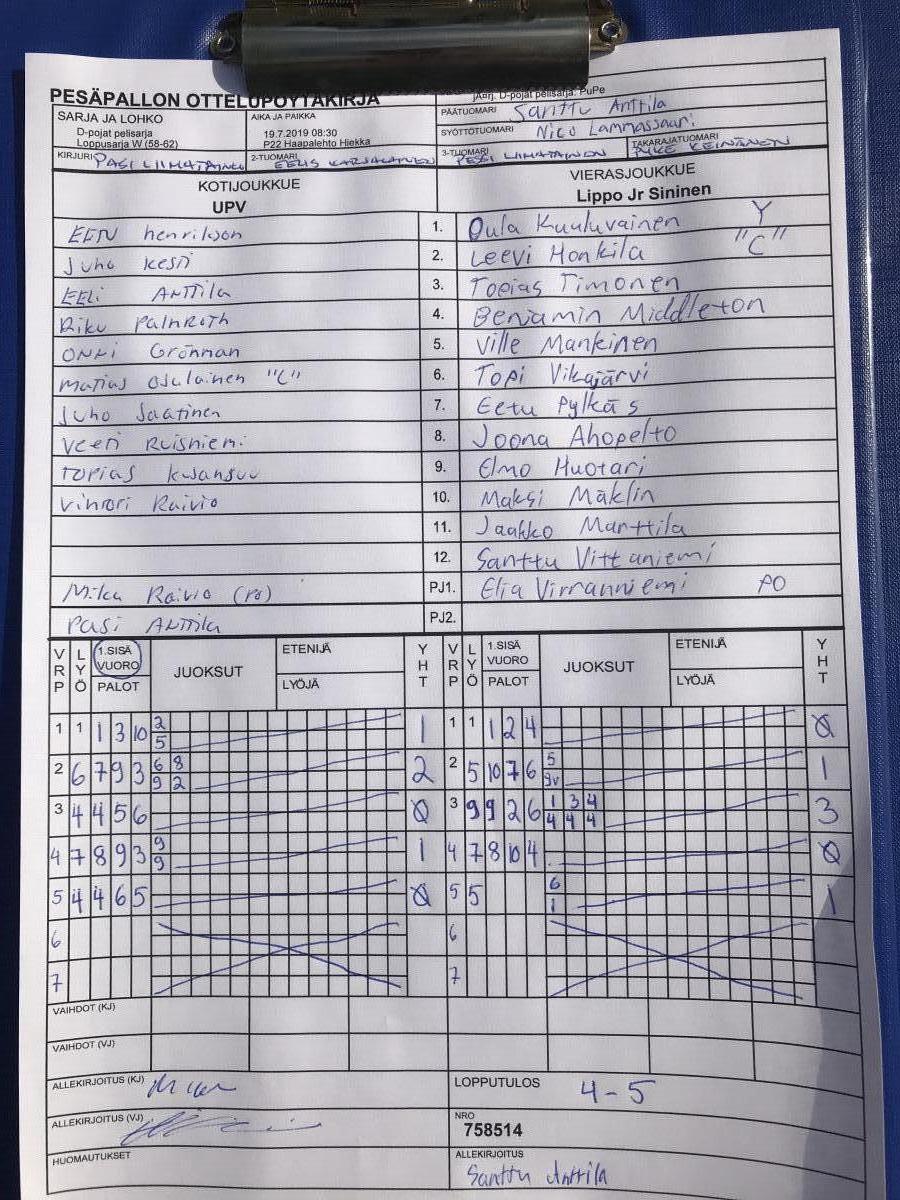 PESÄPALLON OTTELUPÖYTÄKIRJA
SARJA JA LOHKO
D-pojat pelisarja
Loppusarja W (58-62)
AIKA JA PAIKKA
19.7.2019 08:30
P22 Haapalehto Hiekka
D-pojat pelisarja: PuPe
PÄÄTUOMARI Santtu Anttila
SYÖTTÖTUOMARI Nico Lammassaari
KIRJURI PASI LIIMATAINEN
2-TUOMARI EELIS KARJALAINEN
3-TUOMARI PESSI LIIMATAINEN
TAKARAJATUOMARI KEINÄNEN
KOTIJOUKKUE
UPV
VIERASJOUKKUE
Lippo Jr Sininen
EETU henriksson 1. Oula Kuuluvainen Y
Juho Kesti 2. Leevi Honkila "C"
EELi ANTTiLa 3. Topias Timonen
Riku PalnRoth 4. Benjamin Middleton
ONNi Grönman 5. Ville Mankinen
Matias Oulainen "C" 6. Topi Vikajärvi
Juho Saatinen 7. Eetu Pylkäs
Veeti Ruisniemi 8. Joona Ahopelto
TOPIAS 9. Elmo Huotari
Vihtori Raivio 10. Maksi Mäklin
11. Jaakko Marttila
12. Santtu Vittaniemi
Mika Raivio (PO) PJ1. Elia Virranniemi PO
PASi ANTTiLa PJ2.
VRP LYÖ 1.SISÄ VUORO PALOT JUOKSUT ETENIJÄ LYÖJÄ YHT VRP LYÖ 1.SISÄ VUORO PALOT JUOKSUT ETENIJÄ LYÖJÄ YHT
1 1 1 3 10 2 1 1 1 1 2 4 0
5
2 6 7 9 3 6 8 2 2 5 10 7 6 5 1
9 2 9v
3 4 4 5 6 0 3 9 9 2 6 1 3 4 3
4 4 4
4 7 8 9 3 9 1 4 7 8 10 4 0
9
5 4 4 6 5 0 5 5 6 1
1
6 6
7 7
VAIHDOT (KJ)
VAIHDOT (VJ)
ALLEKIRJOITUS (KJ)
LOPPUTULOS 4-5
ALLEKIRJOITUS (VJ)
NRO
758514
HUOMAUTUKSET
ALLEKIRJOITUS
Santtu Anttila